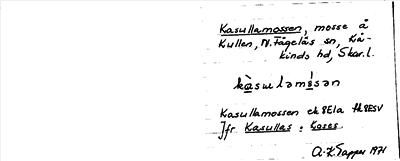 Kasullamossen, mosse å
Kullen, N. Fågelås sn, Kå-
kinds hd, Skar. l.
kàsulamʹsən
Kasullamossen ek 8E1a fk 8ESV
Jfr Kasulles. Koses
A-K. Tapper 1971